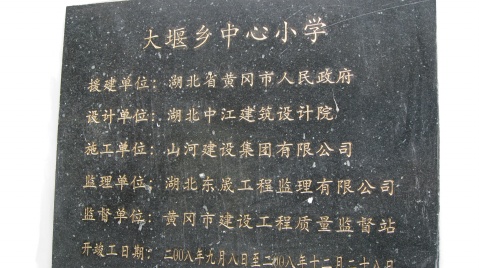 大堰乡中心小学
援建单位：湖北省黄冈市人民政府
设计单位：湖北中江建筑设计院
施工单位：山河建设集团有限公司
监理单位：湖北东晟工程监理有限公司
监督单位：黄冈市建设工程质量监督站
开竣工日期：二00八年九月八日至二00八年十二月二十八日